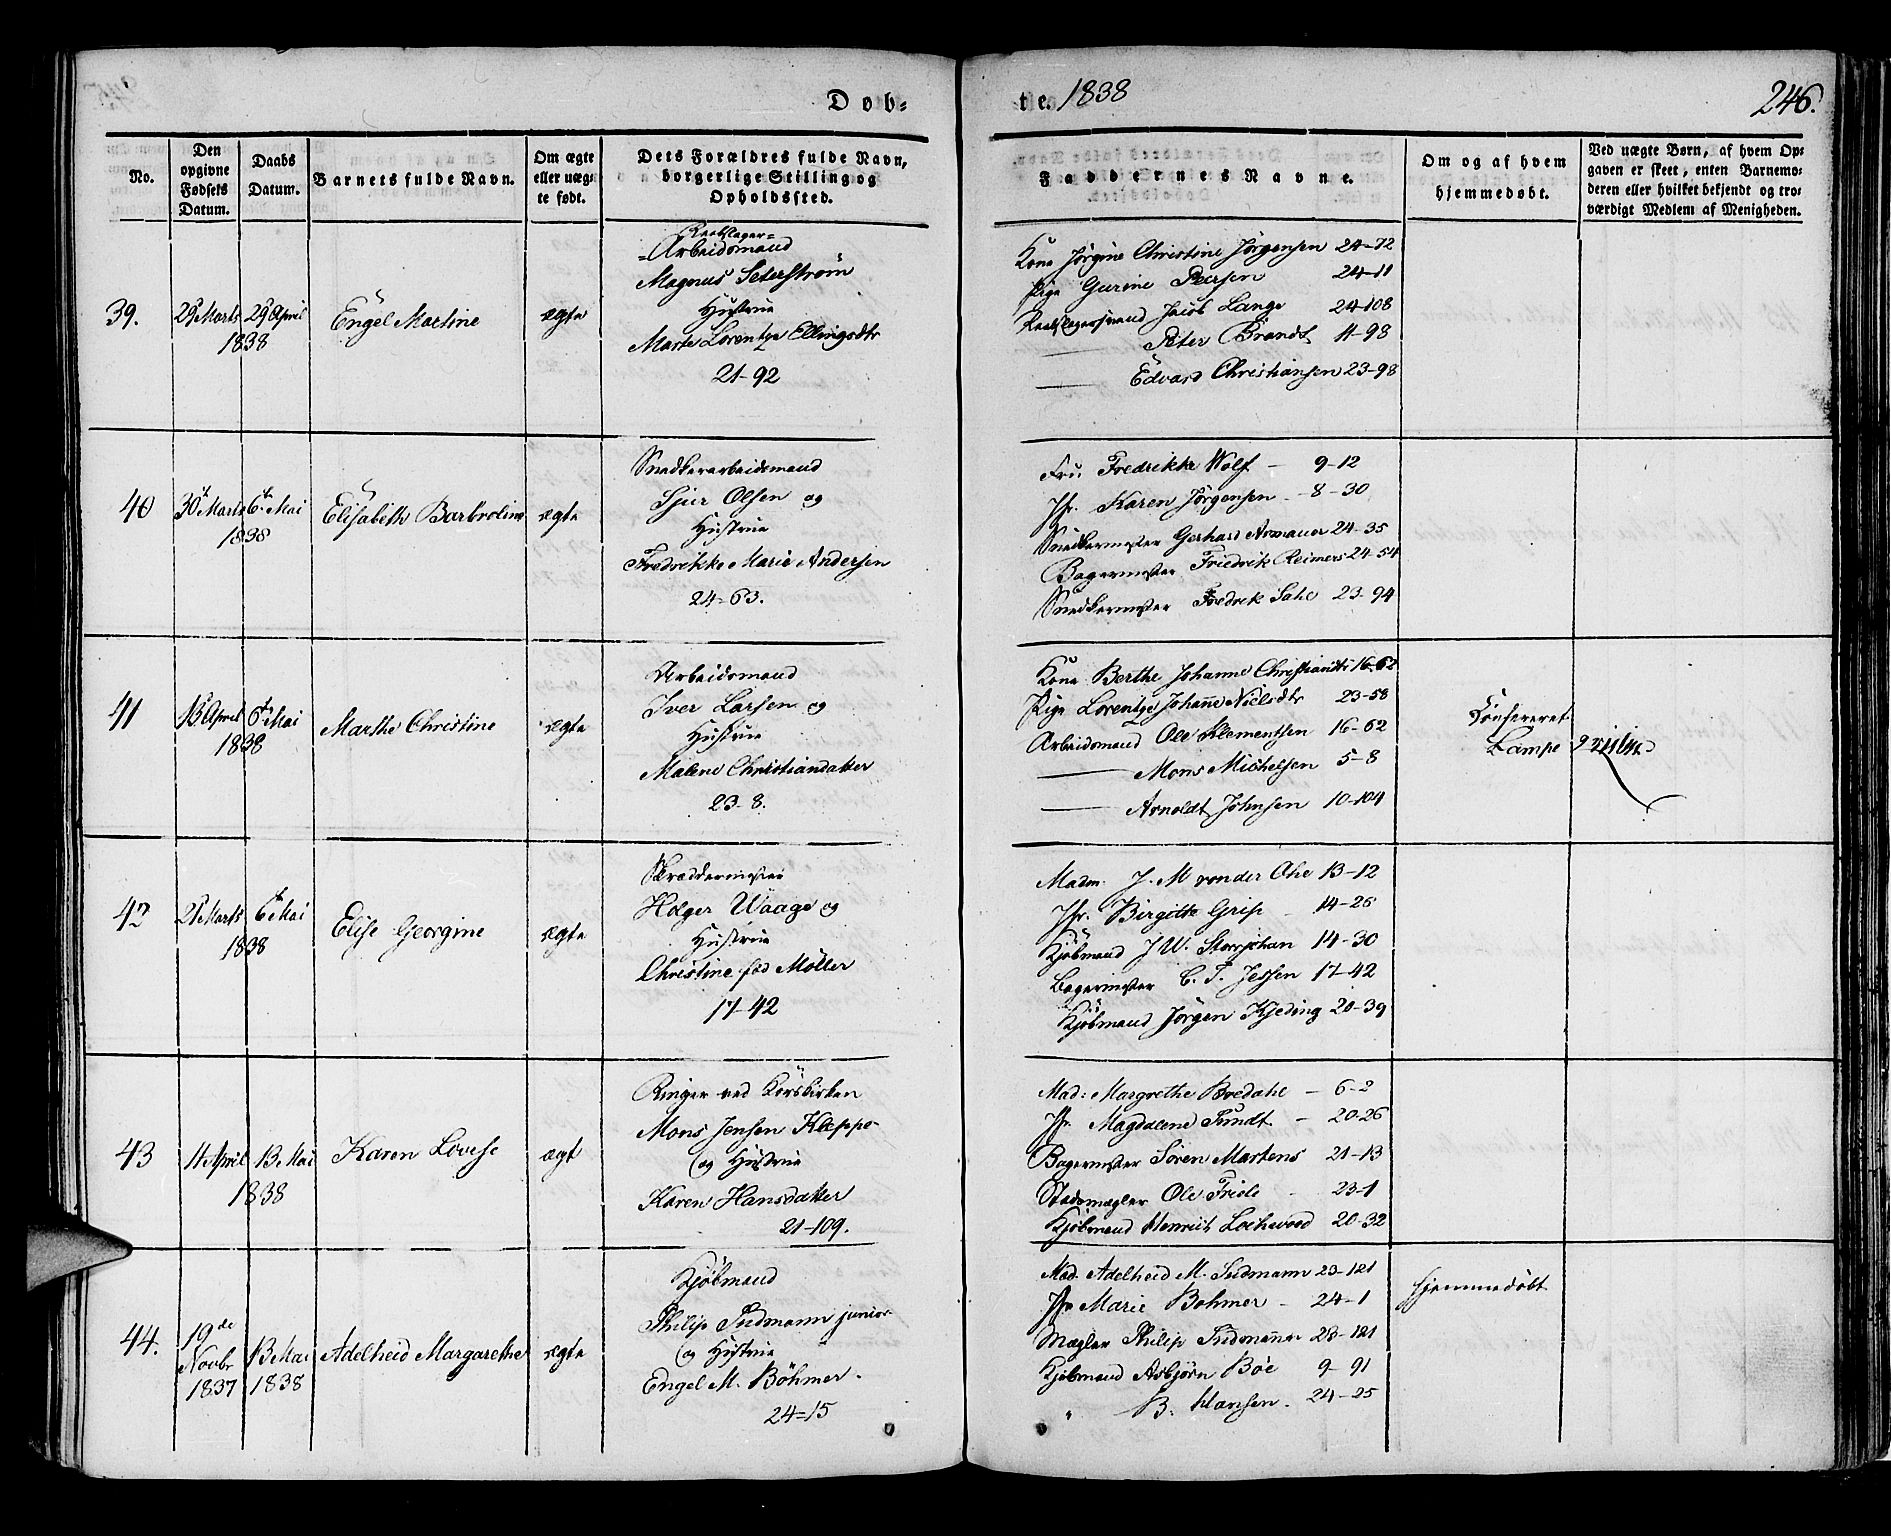 Dob=
te. 1838
246.
No.
Den opgivne Fødsels Datum.
Daabs Datum.
Barnets fulde Navn.
Om ægte eller uægte født.
Dets Forældres fulde Navn, borgerlige Stilling og Opholdssted.
Faddernes Navne.
Om og af hvem hjemmedøbt.
Ved uægte Børn, af hvem Opgaven er skeet, enten Barnemoderen eller hvilket bekjendt og troværdigt Medlem af Menigheden.
39.
29 Marts
29 April
1838
Engel Martine
ægte
Reebslager=
=Arbeidsmand
Magnus Seterstrøm
Hustrue
Marte Lorentze Ellingsdtr
21-92
Kone Jørgine Christine Jørgensen 24-72
Pige Gurine Petersen 24-11
Reebslagersvend Jacob Lange 24-108
Peter Brandt 11-98
Edvard Christiansen 23-98
40
30 Marts
6 Mai
1838
Elisabeth Barbroline
ægte
Snedkerarbeidsmand
Sjur Olsen og
Hustrue
Fredrikke Marie Andersen
24=63.
Fru Fredrikke Wolf - 9-12
Jfr. Karen Jørgensen - 8-30
Snedkermester Gerhard Armauer 24-35
Bagermester Friedrik Reimers 24-54
Snedkermester Fredrik Sahl 23-94
41
15 April
6 Mai
1838
Marthe Christine
ægte
Arbeidsmand
Iver Larsen og
Hustrue
Malene Christiansdatter
23-8.
Kone Berthe Johanne Christiansdtr 16-62
Pige Lorentze Johanne Nielsdtr 23-58
Arbeidsmand Ole Klementsen 16-62
Mons Michelsen 5-8
Arnoldt Johnsen 10-104
Confereret
Lampe
42
21 Marts
6 Mai
1838
Elise Georgine
ægte
Skræddermester
Holger Waage og
Hustrue
Christine fød Møller
17-42
Madm. J. M von der Ohe 13-12
Jfr. Birgitte Grip - 14-26
Kjøbmand J W. Storjohan 14-30
Bagermester C. F. Jessen 17-42
Kjøbmand Jørgen Kjeding 20-39
43
11 April
13 Mai
1838
Karen Lovise
ægt
Ringer ved Korskirken
Mons Jensen Kleppe
og Hustrue
Karen Hansdatter
21-109.
Mad: Margrethe Bredahl - 6-2
Jfr. Magdalene Fundt - 20-26
Bagermester Søren Martens 21-13
Stadsmægler Ole Friele 23-1
Kjøbmand Henrich Lochwood 20-32
44.
19de
Novbr
1837
13 Mai
1838
Adelheid Margarethe
ægte
Kjøbmand
Philip Sudmann junior
og Hustrue
Engel M. Bøhmer.
24=15
Mad. Adelheid M. Sudmann 23-121
Jfr Marie Bøhmer - 24-1
Mægler Philip Sudmann 23-121
Kjøbmand Asbjørn Bøe 9-91
" B. Hansen. 24-25
Hjemmedøbt